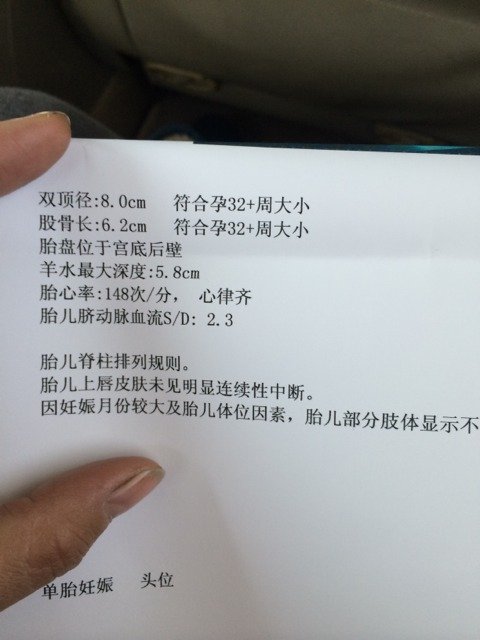 双顶径:8.0cm 符合孕32+周大小
股骨长:6.2cm 符合孕32+周大小
胎盘位于宫底后壁
羊水最大深度:5.8cm
胎心率:148次/分, 心律齐
胎儿脐动脉血流S/D: 2.3
胎儿脊柱排列规则。
胎儿上唇皮肤未见明显连续性中断。
因妊娠月份较大及胎儿体位因素，胎儿部分肢体显示不
单胎妊娠 头位